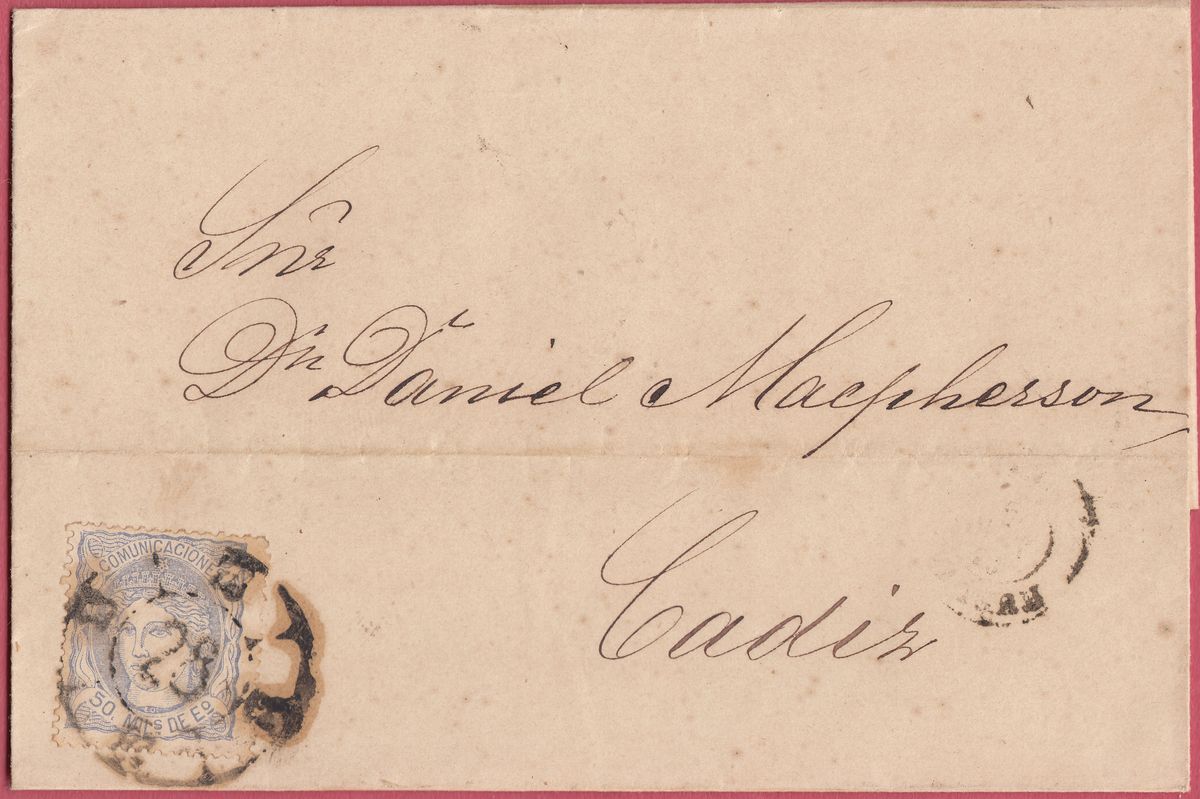 Snr
Dn Daniel Macpherson,
Cadiz
COMUNICACIONES
28
50. MILs DE Eo